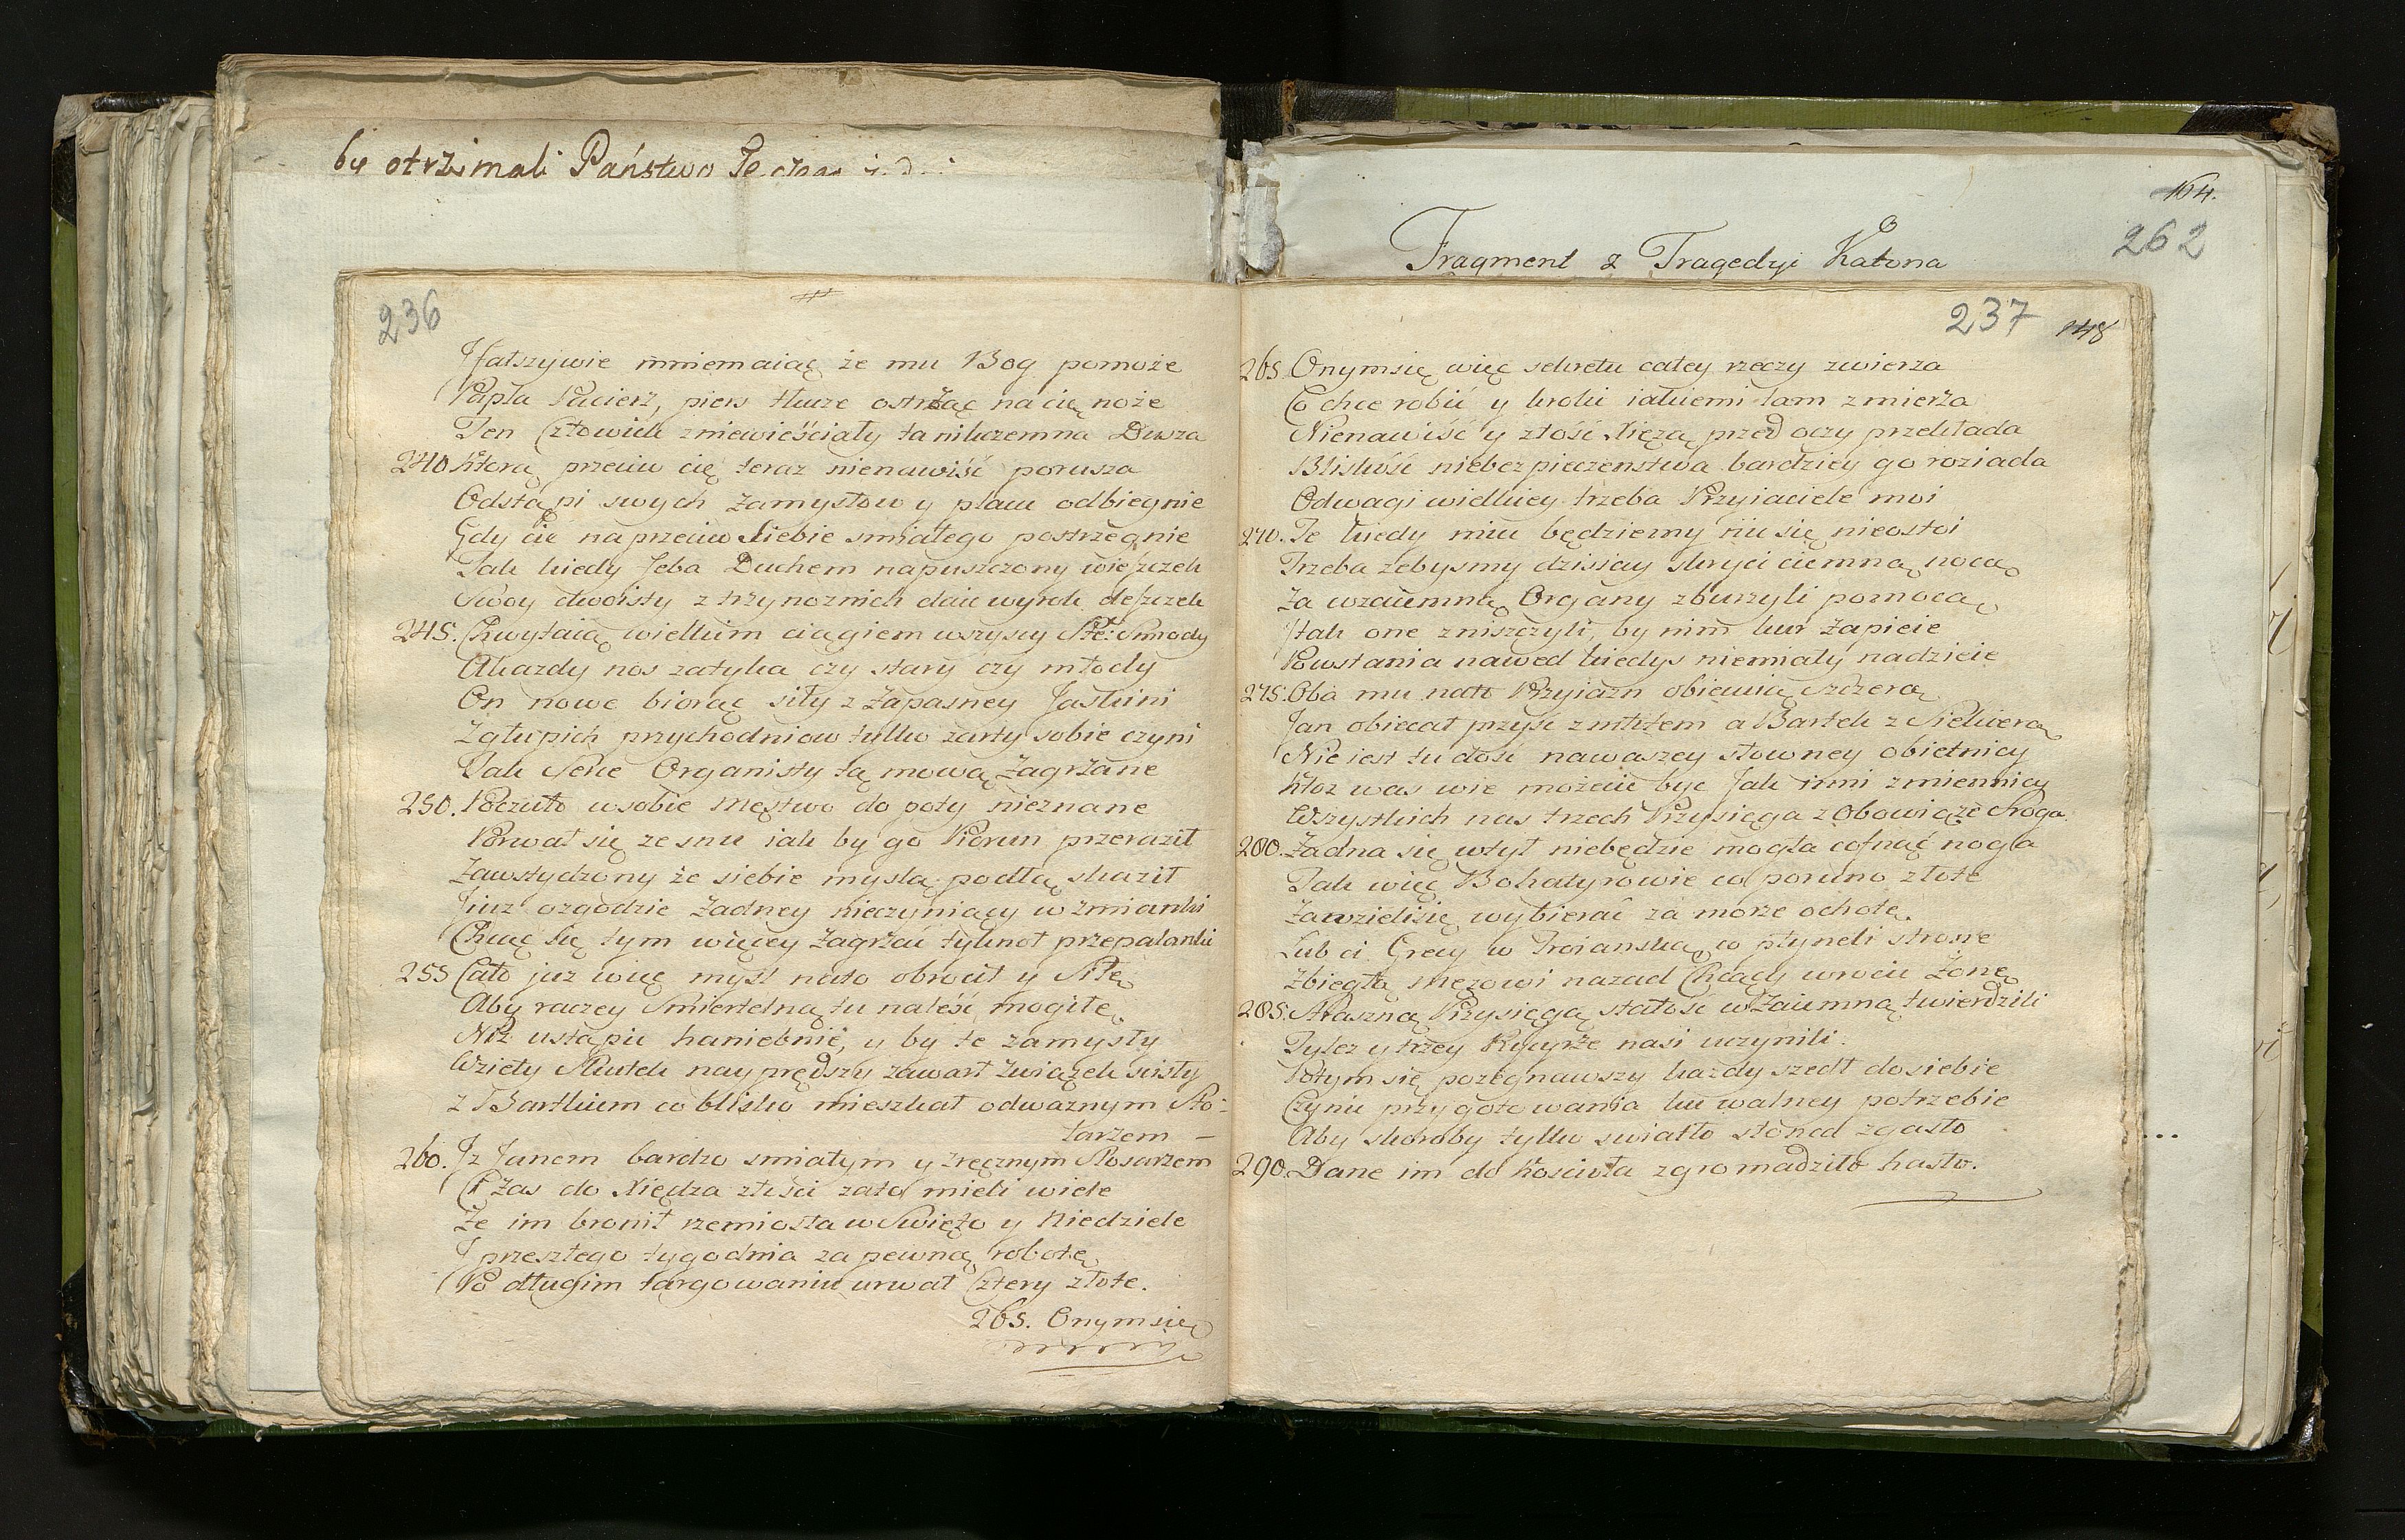 by otrzimali Państwo
236
Jfałszywie mniemaiąc że mu Bog pomoże
Papla Pacierz, piers tłucze ostrząc na cię noże
Ten Człowiek zniewieściały ta nikczemna Dusza
240 Ktorą przeciw cię teraz nienawiść porusza
Odstąpi swych zamysłow y placu odbiegnie
Gdy cię naprzeciw Siebie smiałego postrzegnie
Tak kiedy Feba Duchem napuszczony wieszczek
Swoy dwoisty z trzynoznich daie wyrok deszczek
245. Chwytaią wielkim ciągiem wszyscy Smrody
A kazdy nos zatyka czy stary czy młody
On nowe biorąc siły z zapasney Jaskini
Z głupich przychodniow tylko zarty sobie czyni
Tak Serce Organisty tą mową zagrzane
250. Poczuło wsobie męstwo do poty nieznane
Porwał się ze snu iak by go Piorun przeraził
Zawstydzony że siebie myslą podłą skaził
Jiuz ozgodzie żadney nieczyniący wzmianki
Chcąc Się tym więcey zagrzać łyknoł przepalanki
255 Cało juz więc mysl nato obrocił y Siłę
Aby raczey Smiertelną tu naleść mogiłę
Niż ustąpić haniebnie, y by te zamysły
Wzieły Skutek nayprędszy zawarł związek scisły
z Bartkiem co blisko mieszkał odwaznym Sto-
larzem —
260. Jz Janem bardzo smiałym y zręcznym Slosarzem
Ci zas do Xiędza złości zato mieli wiele
Że im bronił rzemiosła w Swięto y Niedziele
J przeszłego tygodnia za pewną robotę
Po długim targowaniu urwał Cztery złote.
265. Onymsię
164.
262
Fragment z Tragedyi Katona
237
148
265. Onymsię więc sekretu całey rzeczy zwierza
Co chce robić y kroki iakiemi tam zmierza
Nienawiść y złość Xięzą przed oczy przekłada
Bliskość niebezpieczenstwa bardziey go roziada
Odwagi wielkiey trzeba Przyiaciele moi
270. Te kiedy mieć będziemy nic się nieostoi
Trzeba zebysmy dzisiay skryci ciemną nocą
Za wzaiemną Organy zburzyli pomocą
Jtak one zniszczyli, by nim kur zapieie
Powstania nawed kiedys niemiały nadzieie
275. Oba mu nato Przyiazn obiecuią szczerą
Jan obiecał przyść z młotem a Bartek z Siekierą
Nie iest tu dość nawaszey słowney obietnicy
Ktoz was wie możecie być Jak inni zmiennicy
Wszystkich nas trzech Przysięga zobowiąże Sroga
280. Żadna się wtył niebędzie mogła cofnąć noga
Tak więc Bohatyrowie co poruno złote
Zawzielisię wybierać za morze ochotę.
Lub ci Grecy w Troianską co płyneli stronę
Zbiegłą mężowi nazad Chcący wrocić Żonę
285. Straszną Przysięgą stałość wzaiemną twierdzili
Tylez y trzey Rycyrze nasi uczynili.
Potym się pozegnawszy kazdy szedł dosiebie
Czynić przygotowania ku walney potrzebie
Aby skoroby tylko swiatło słonca zgasło
290. Dane im do Kościoła zgromadziło hasło.